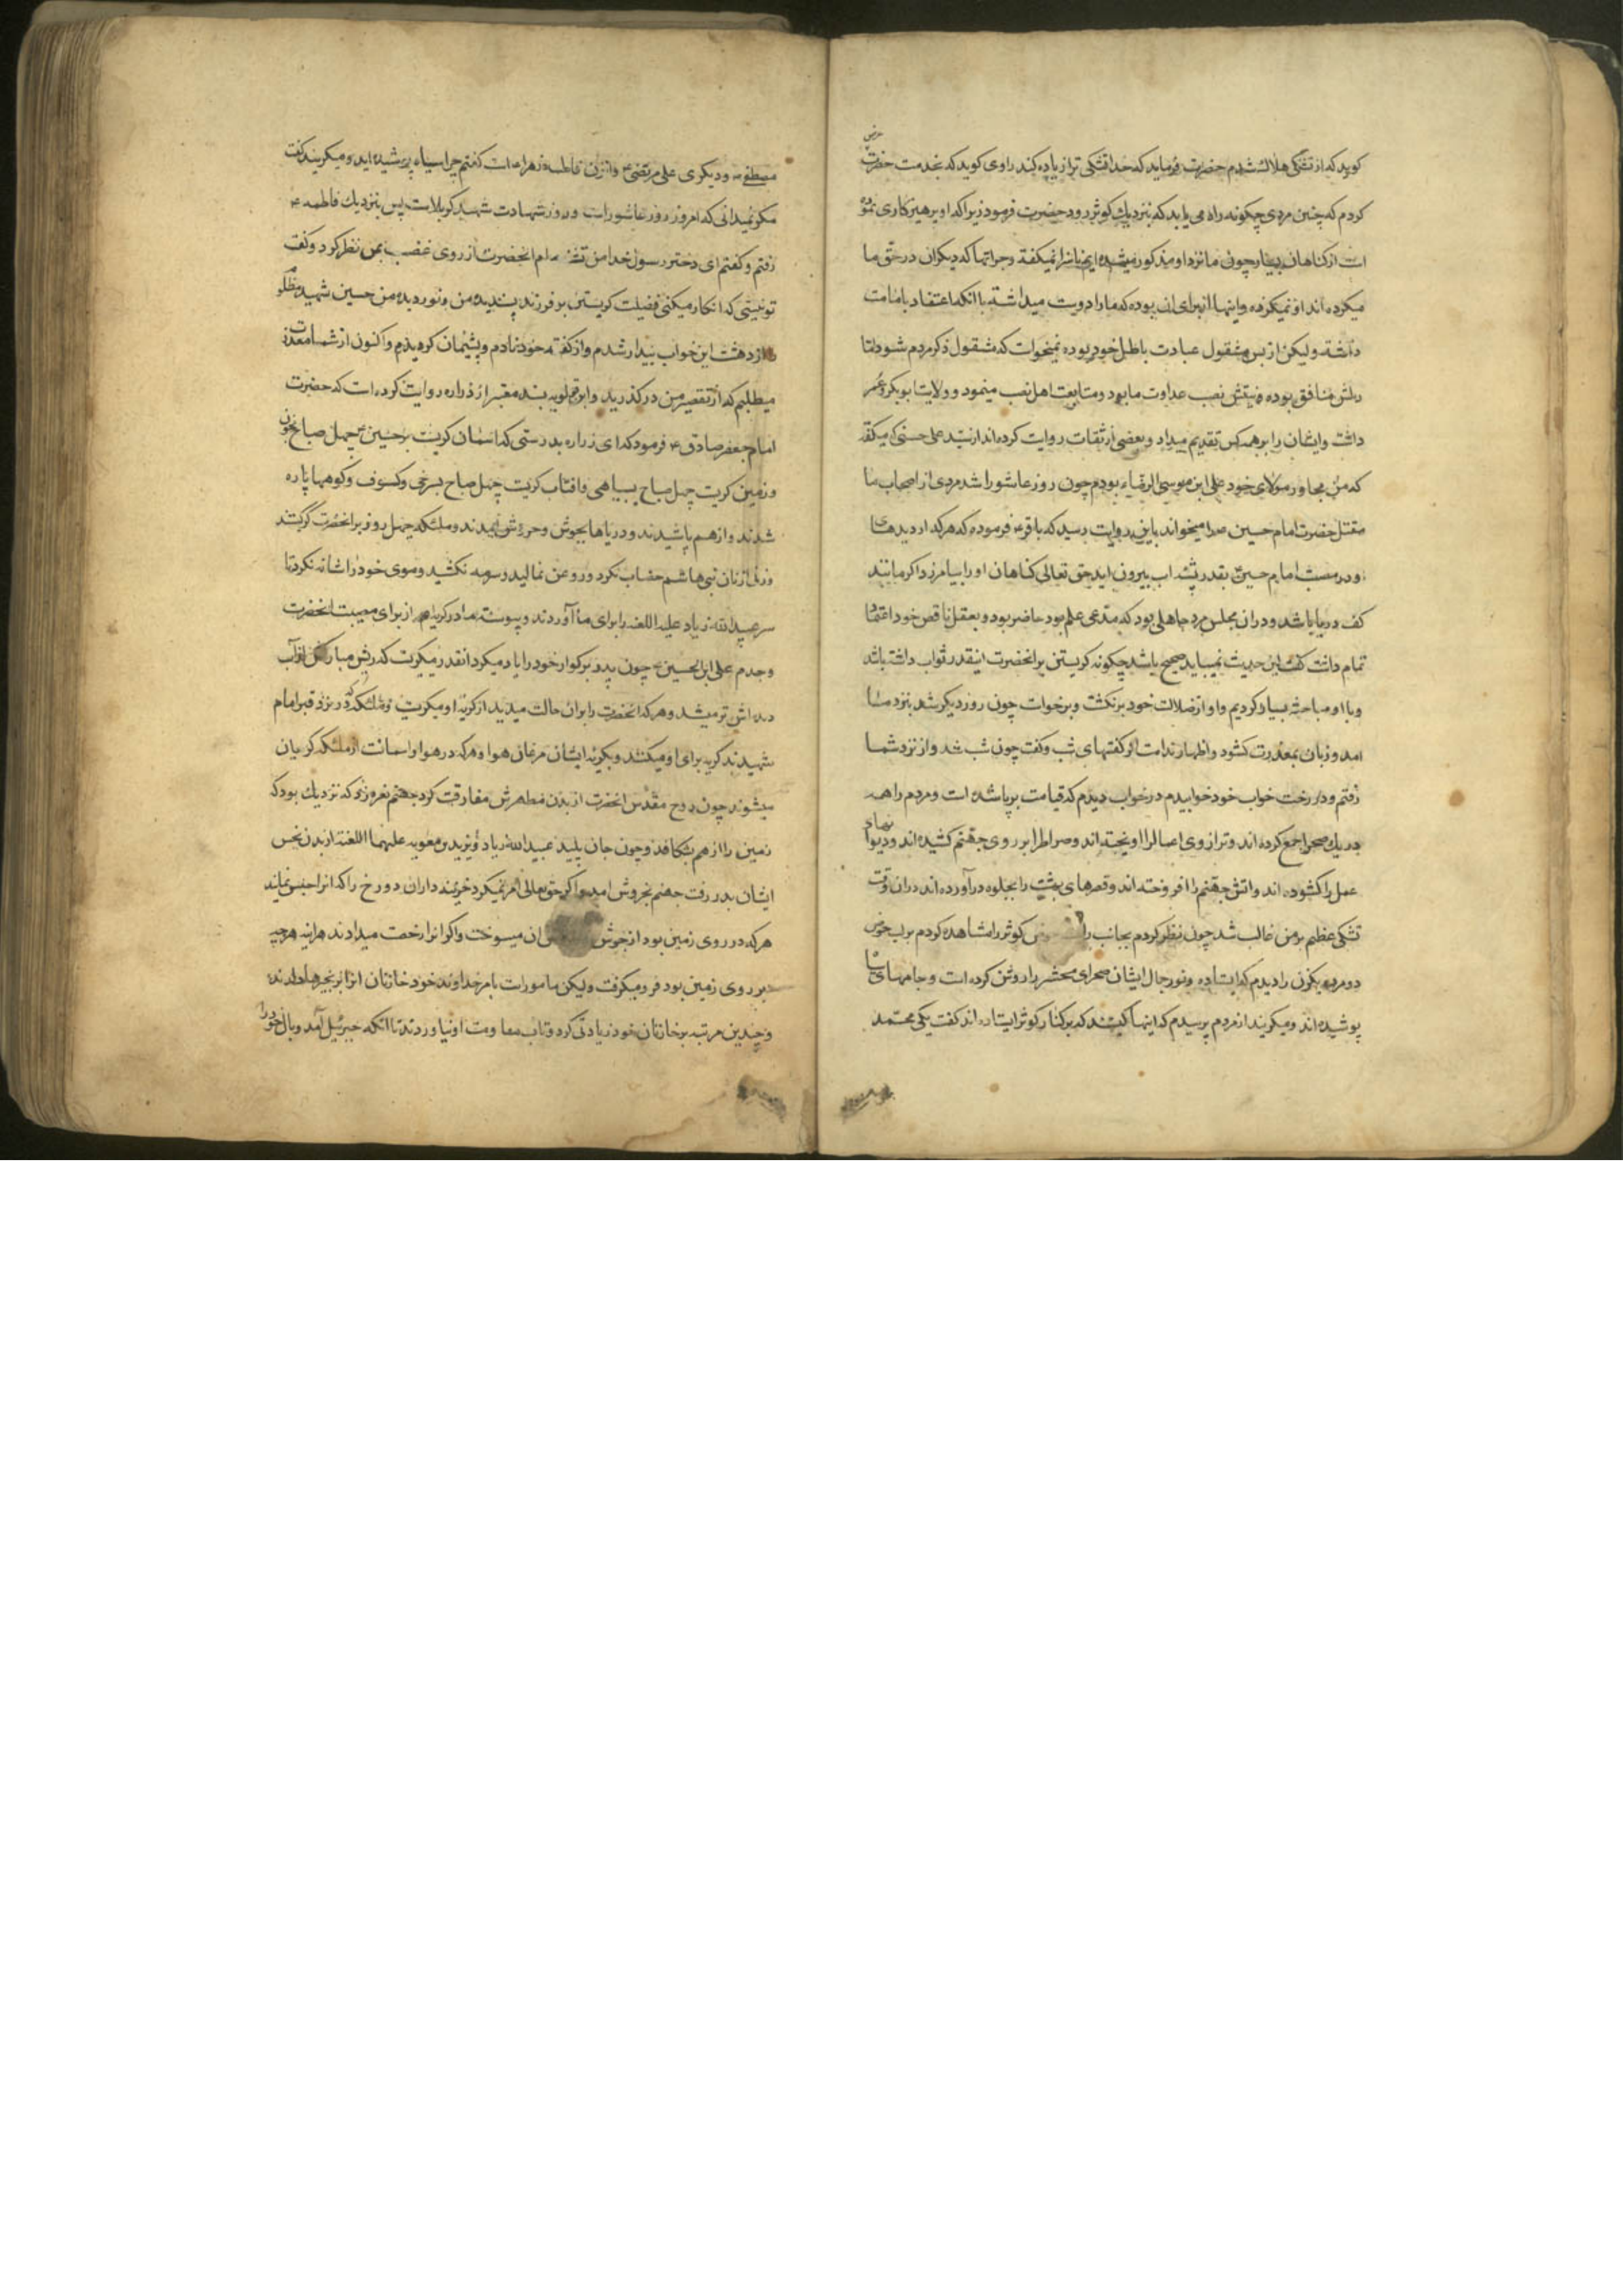 کوید که از تشنکی هلاک شدم حضرت فرماید که خدا تشنکی ترا زیاده کند راوی کوید که بخدمت حضرت عرض
کردم که چنین مردی چکونه راه می یابد که بنزدیك کوثر رود حضرت فرمود زیرا که او پرهیزکاری نموده
است از کناهان بسیار چون ما نزد او مذکور میشده ایم ناسزا نمیکفته وجراتها که دیکران در حق ما
میکرده اند او نمیکرده واینها از برای ان بوده که ما را دوست میداشته با انکه اعتقاد بامامت
داشته ولیکن از بس مشقول عبادت باطل خود بوده نمیخواست که مشقول ذکر مردم شود اما
دلش منافق بوده ودینش نصب عداوت ما بود ومتابعت اهل نصب مینمود وولایت ابوبکر وعمر
داشت وایشان را بر همه کس تقدیم میداد وبعضی از ثقات روایت کرده اند از سید علی حسنی که میکفت
که من مجاور مولای خود علی ابن موسی الرضاء بودم چون روز عاشورا شد مردی از اصحاب ما
مقتل حضرت امام حسین را میخواند باین روایت رسید که باقر فرموده که هر که از دیدهای
او در مصیبت امام حسین بقدر پشه اب بیرون اید حق تعالی کناهان او را بیامرزد اکر مانند
کف دریا باشد ودر ان مجلس مرد جاهلی بود که مدعی علم بود حاضر بود وبعقل ناقص خود اعتقاد
تمام داشت کفت این حدیث نمیباید صحیح باشد چکونه کریستن بر انحضرت اینقدر ثواب داشته باشد
وبا او مباحثه بسیار کردیم واو از ضلالت خود برنکشت وبرخواست چون روز دیکر شد بنزد ما
امد وزبان بمعذرت کشود واظهار ندامت از کفتهای شب وکفت چون شب شد واز نزد شما
رفتم ودر رخت خواب خود خوابیدم در خواب دیدم که قیامت برپا شده است ومردم را همه
در یك صحرا جمع کرده اند وترازوی اعمال را اویخته اند وصراط را بر روی جهنم کشیده اند ودیوانهای
عمل را کشوده اند واتش جهنم را افروخته اند وقصرهای بهشت را بجلوه در آورده اند در ان وقت
تشنکی عظیم بر من غالب شد چون نظر کردم بجانب راست حوض کوثر را مشاهده کردم بر لب حوض
دو مرد ویکزن را دیدم که ایستاده ونور جمال ایشان صحرای محشر را روشن کرده است وجامهای سیاه
پوشیده اند ومیکریند از مردم پرسیدم که اینها کیستند که بر کنار کوثر ایستاده اند کفت یکی محمد
مصطفی ودیکری علی مرتضی وان زن فاطمه زهراء است کفتم چرا سیاه پوشیده اید ومیکریند کفت
مکر نمیدانی که امروز روز عاشوراست وروز شهادت شهید کربلاست پس بنزدیك فاطمه
رفتم وکفتم ای دختر رسول خدا من تشنه ام انحضرت از روی غضب بمن نظر کرد وکفت
تو نیستی که انکار میکنی فضیلت کریستن بر فرزند پسندیده من ونور دیده من حسین شهید مظلوم
از دهشت این خواب بیدار شدم واز کفته خود نادم وپشیمان کردیدم واکنون از شما معذرت
میطلبم که از تقصیر من در کذرید وابن قولویه بسند معتبر از ذراره روایت کرده است که حضرت
امام جعفر صادق فرمود که ای زراره بدرستی که اسمان کریست بر حسین چهل صباح بخون
وزمین کریست چهل صباح بسیاهی وافتاب کریست چهل صباح بسرخی وکسوف وکوهها پاره
شدند واز هم پاشیدند ودریاها بجوش وخروش امدند وملئکه چهل روز بر انحضرت کریستند
وزنی از زنان بنی هاشم خضاب نکرد وروغن نمالید وسرمه نکشید وموی خود را شانه نکرد تا
سر عبیدالله زیاد علیه اللعنه را برای ما آوردند وپیوسته ما در کریه ایم از برای مصیبت انحضرت
وجدم علی ابن الحسین چون پدر بزرکوار خود را یاد میکرد انقدر میکریست که ریش مبارکش از آب
دیده اش تر میشد وهر که انحضرت را بر ان حالت میدید از کریه او میکریست وملئکه که در نزد قبر امام
شهیدند کریه برای او میکنند وبکریه ایشان مرغان هوا وهر که در هوا واسمانست از ملئکه کریان
میشوند چون روح مقدس انحضرت از بدن مطهرش مفارقت کرد جهنم نعره زد که نزدیك بود که
زمین را از هم بشکافد وچون جان پلید عبیدالله زیاد ویزید بن معویه علیهما اللعنة از بدن نجس
ایشان بدر رفت جهنم بخروش امد واکر حق تعالی امر نمیکرد خزینه داران دوزخ را که انرا حبس نمایند
هر که در روی زمین بود از جوش ان میسوخت واکر انرا رخصت میدادند هر اینه هر چه
بر روی زمین بود فرو میکرفت ولیکن مامور است بامر خداوند خود خازنان انرا بزنجیرها دارند
وچندین مرتبه بر خازنان خود زیادتی کرد وتاب مقاومت او نیاوردند تا انکه جبرئیل آمد وبال خود را